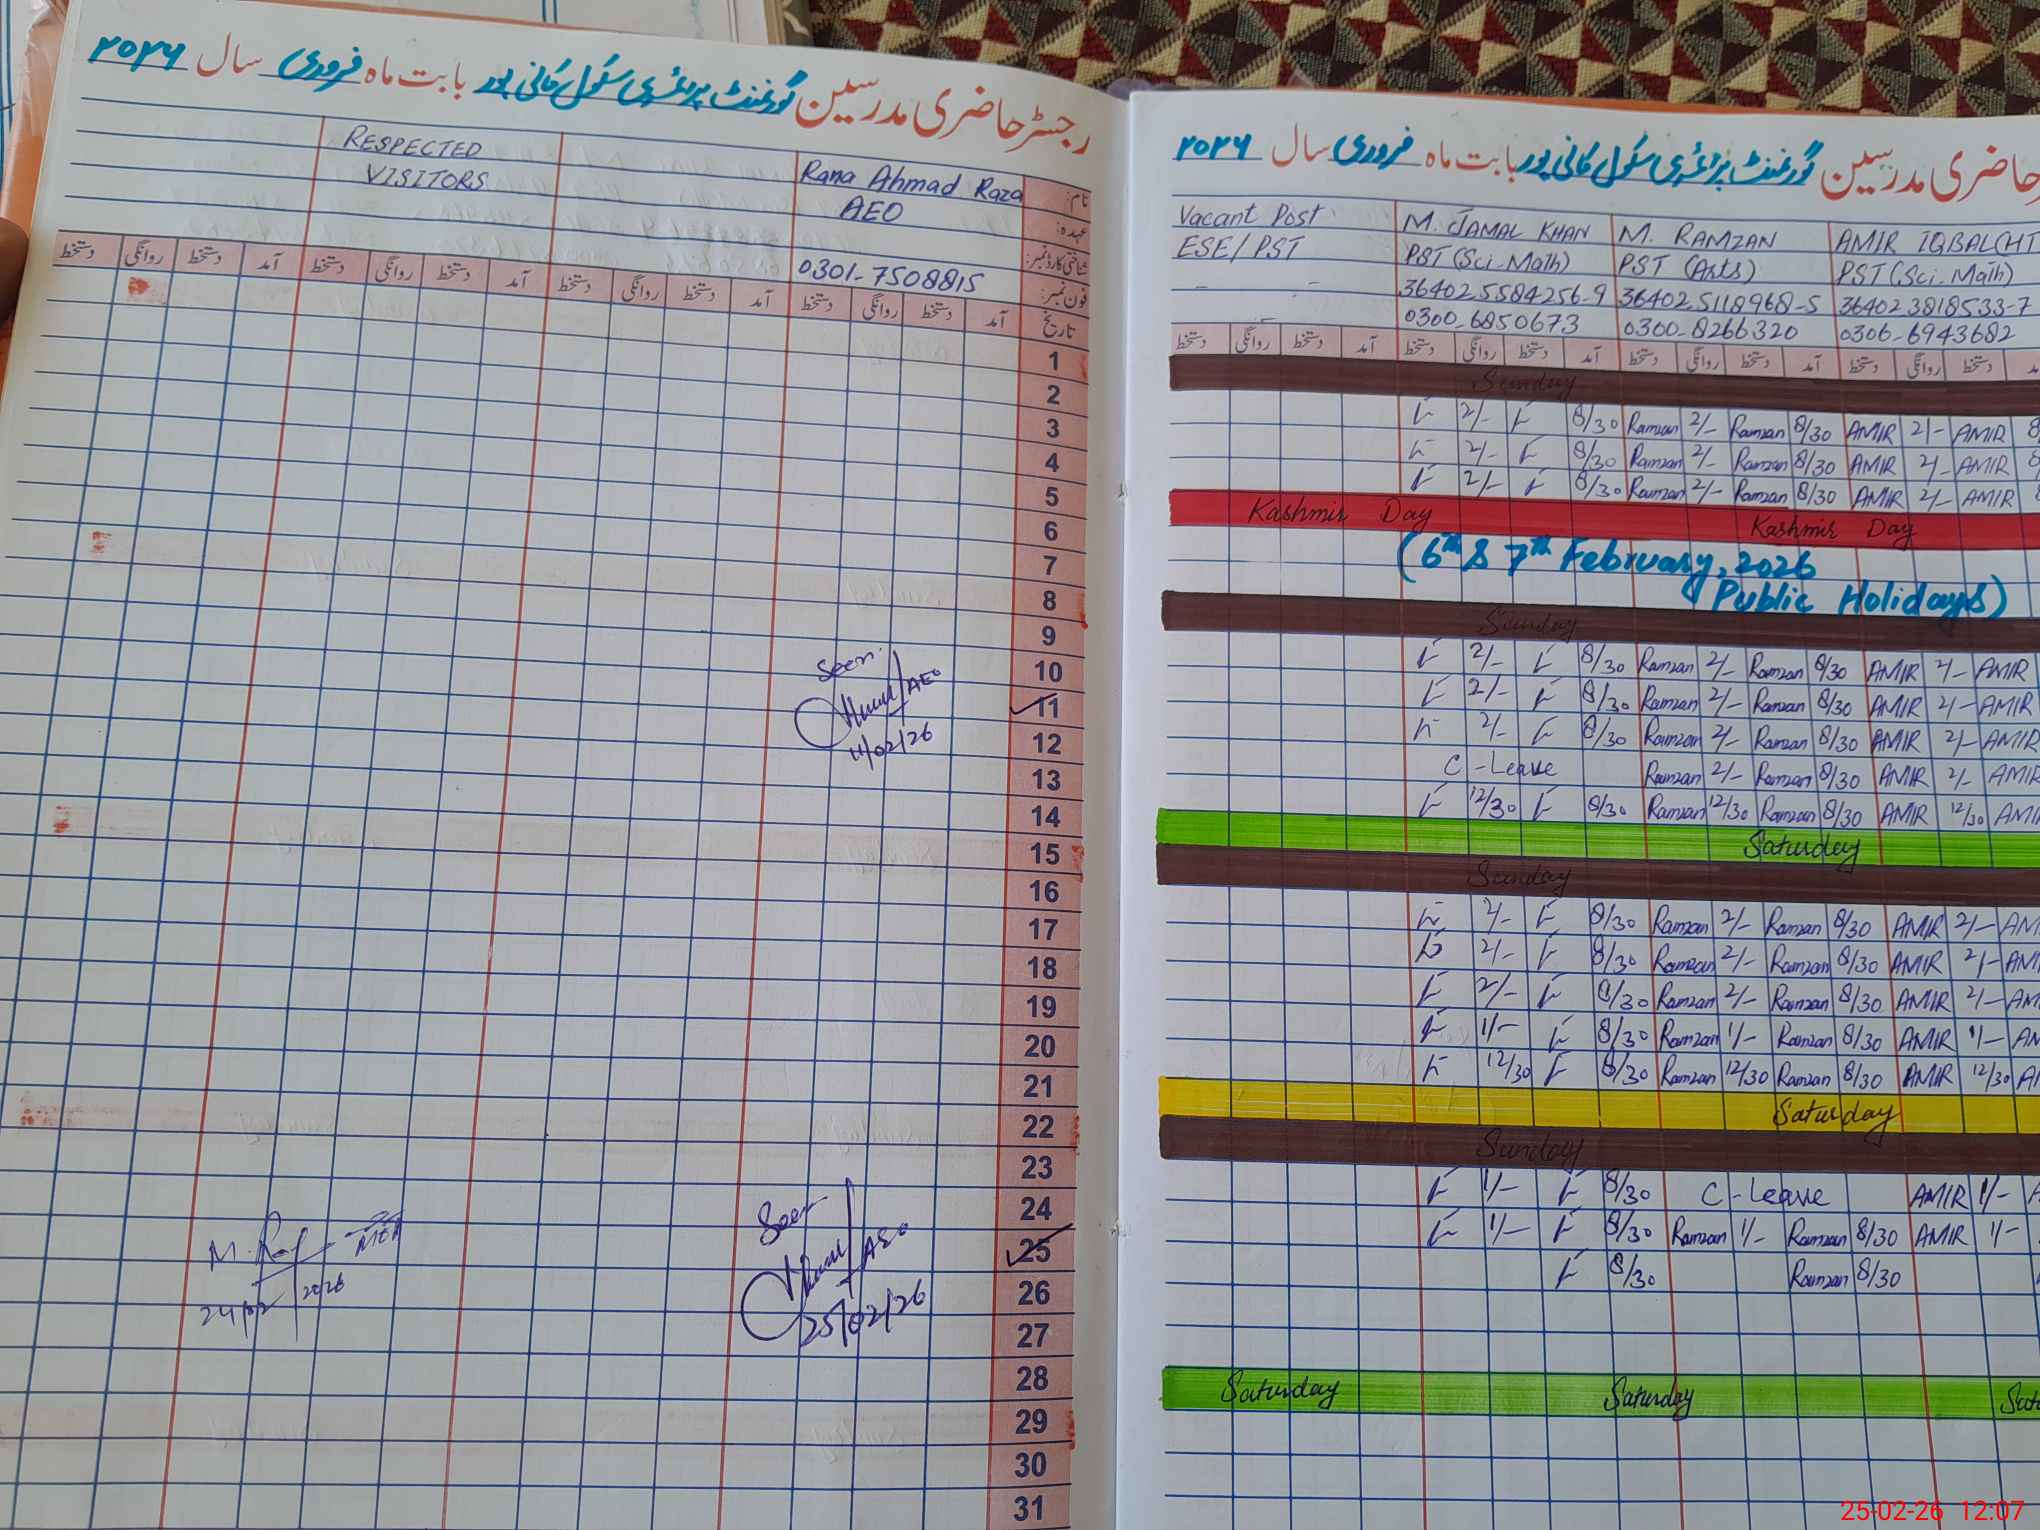 رجسٹر حاضری مدرسین گورنمنٹ پرائمری سکول کانی پور بابت ماہ فروری سال ۲۰۲۶
RESPECTED
VISITORS
Rana Ahmad Raza
AEO
0301-7508815
نام:
عہدہ:
شناختی کارڈ نمبر:
فون نمبر:
تاریخ
آمد دستخط روانگی دستخط آمد دستخط روانگی دستخط آمد دستخط روانگی دستخط آمد دستخط روانگی دستخط
1
2
3
4
5
6
7
8
9
10
11
12
13
14
15
16
17
18
19
20
21
22
23
24
25
26
27
28
29
30
31
Seen
AEO
11/02/26
Seen
AEO
25/02/26
M.
24/02/2026
حاضری مدرسین گورنمنٹ پرائمری سکول کانی پور بابت ماہ فروری سال ۲۰۲۶
Vacant Post M. JAMAL KHAN M. RAMZAN AMIR IQBAL (HT
ESE/PST PST (Sci-Math) PST (Arts) PST (Sci-Math)
- - 36402-5584256-9 36402-5118968-5 36402-3818533-7
0300-6850673 0300-8266320 0306-6943682
دستخط روانگی دستخط آمد دستخط روانگی دستخط آمد دستخط روانگی دستخط آمد دستخط روانگی دستخط
Sunday
2/- 8/30 Ramzan 2/- Ramzan 8/30 AMIR 2/- AMIR 8
2/- 8/30 Ramzan 2/- Ramzan 8/30 AMIR 2/- AMIR 8
2/- 8/30 Ramzan 2/- Ramzan 8/30 AMIR 2/- AMIR
Kashmir Day Kashmir Day
(6th & 7th February, 2026
Public Holidays)
Sunday
2/- 8/30 Ramzan 2/- Ramzan 8/30 AMIR 2/- AMIR
2/- 8/30 Ramzan 2/- Ramzan 8/30 AMIR 2/- AMIR
2/- 8/30 Ramzan 2/- Ramzan 8/30 AMIR 2/- AMIR
C-Leave Ramzan 2/- Ramzan 8/30 AMIR 2/- AMIR
12/30 8/30 Ramzan 12/30 Ramzan 8/30 AMIR 12/30 AMI
Saturday
Sunday
2/- 8/30 Ramzan 2/- Ramzan 8/30 AMIR 2/- AM
2/- 8/30 Ramzan 2/- Ramzan 8/30 AMIR 2/- AMI
2/- 8/30 Ramzan 2/- Ramzan 8/30 AMIR 2/- AM
1/- 8/30 Ramzan 1/- Ramzan 8/30 AMIR 1/- AM
12/30 8/30 Ramzan 12/30 Ramzan 8/30 AMIR 12/30 A
Saturday
Sunday
1/- 8/30 C-Leave AMIR 1/- A
1/- 8/30 Ramzan 1/- Ramzan 8/30 AMIR 1/-
8/30 Ramzan 8/30
Saturday Saturday Sat
25-02-26 12:07